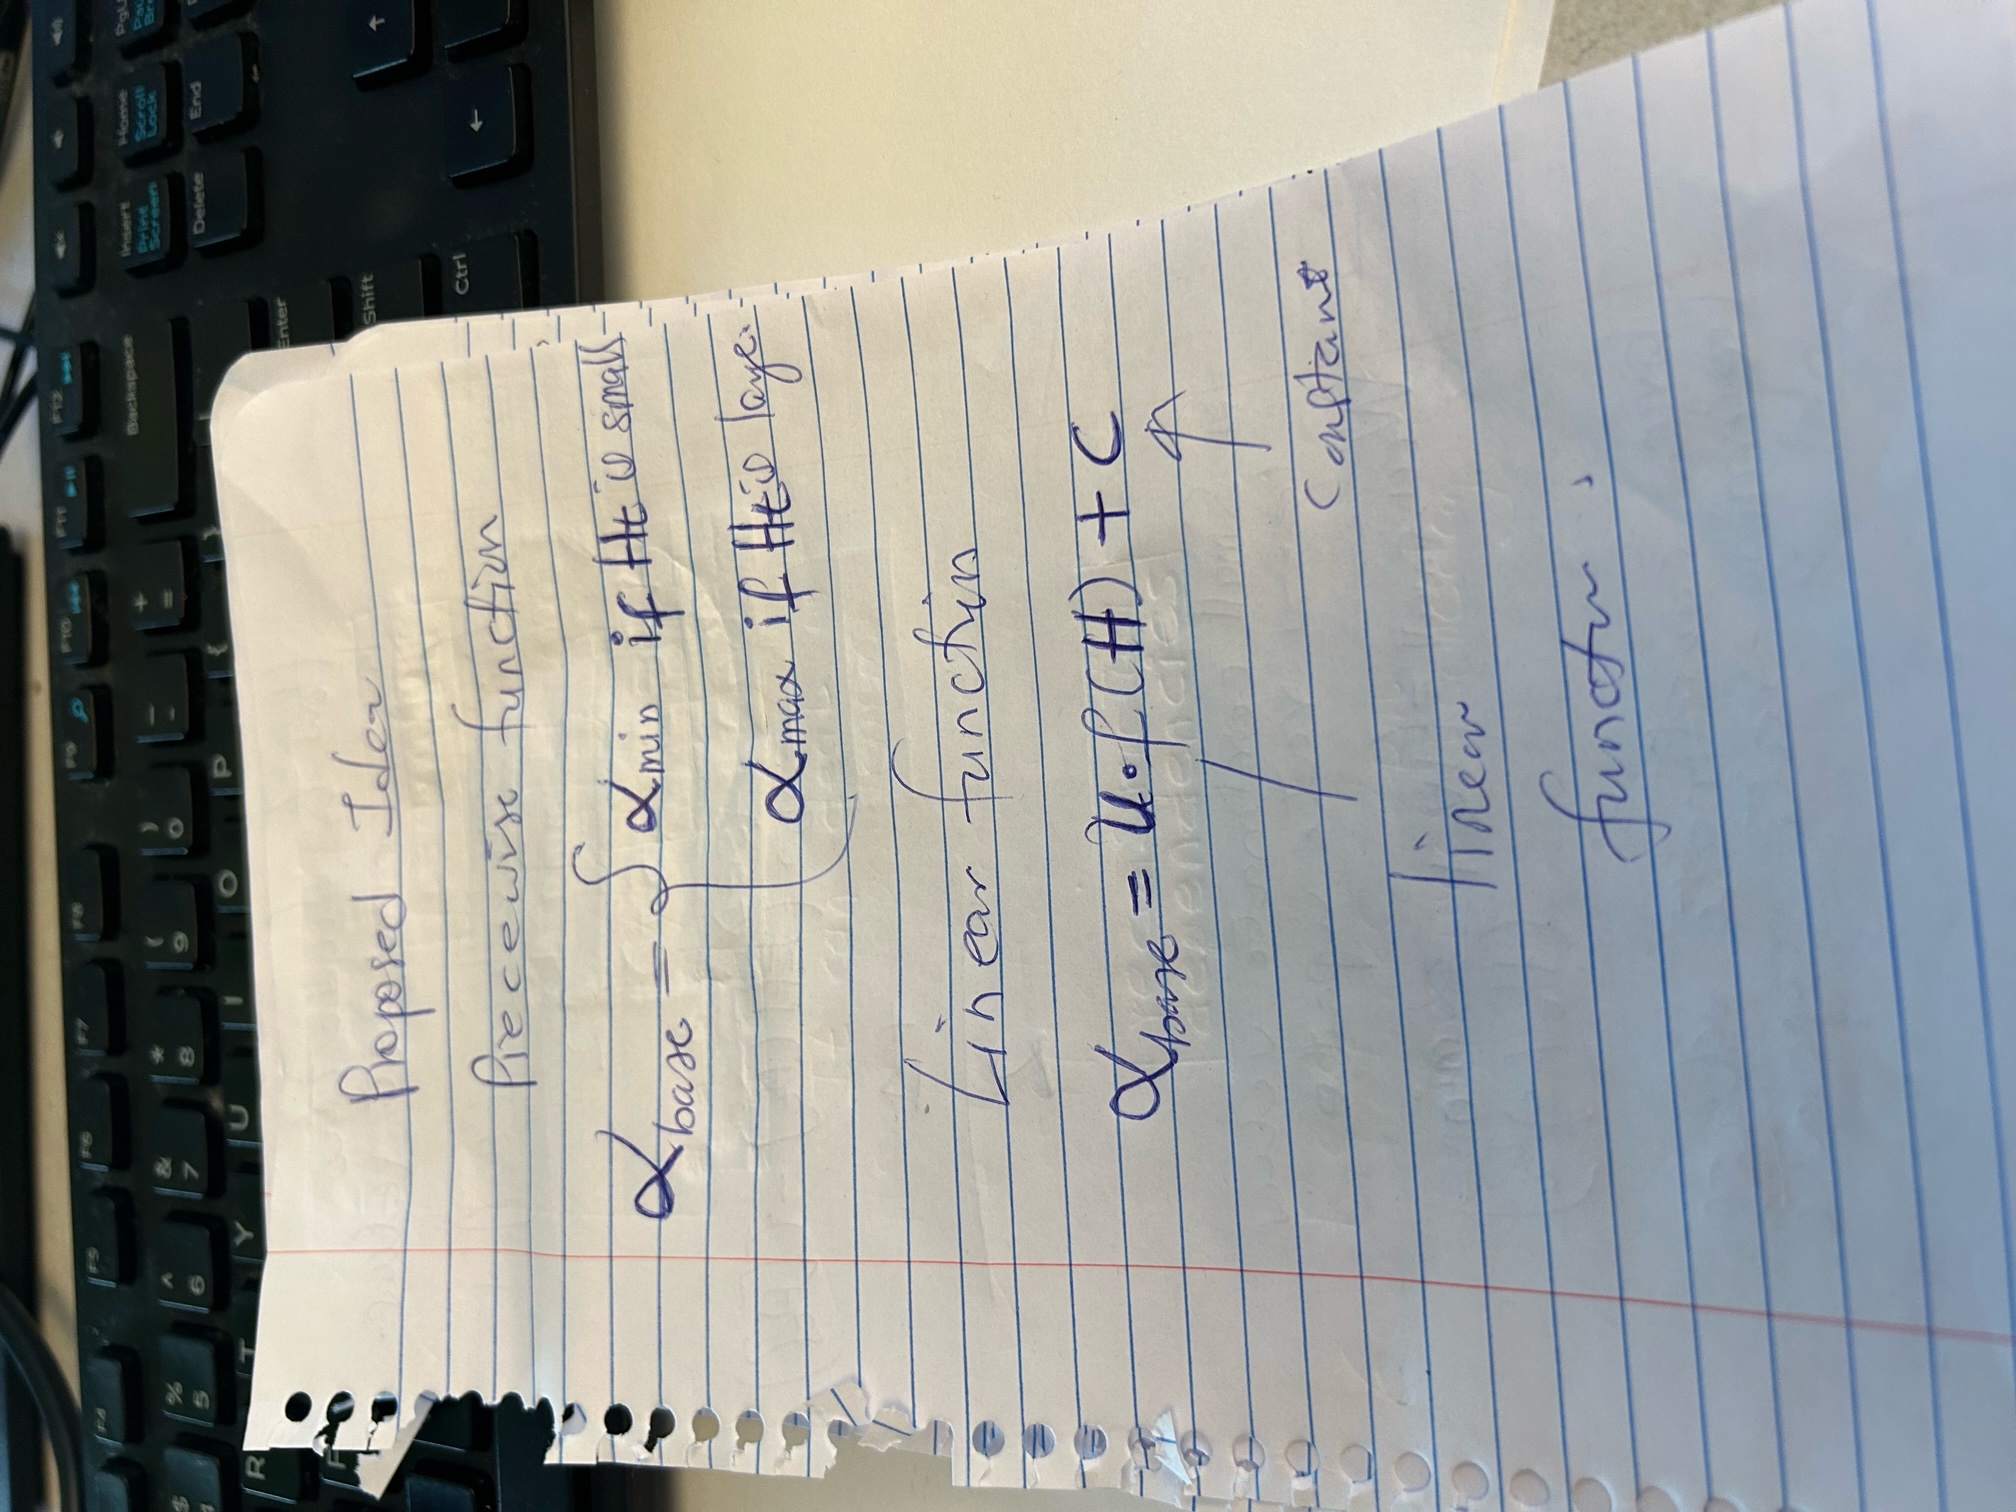 F4 F5 F6 F7 F8 F9 F10 F11 F12
$ 4 % 5 ^ 6 & 7 * 8 ( 9 ) 0 - + = Backspace Insert Print Screen Home Scroll Lock
R T Y U I O P { } Delete End
Enter
Shift
Ctrl
Proposed Idea
Piecewise function
α base = { α min if Ht is small
α max if Ht is large.
Linear function
α base = u · f(H) + C
Constant
linear
function .